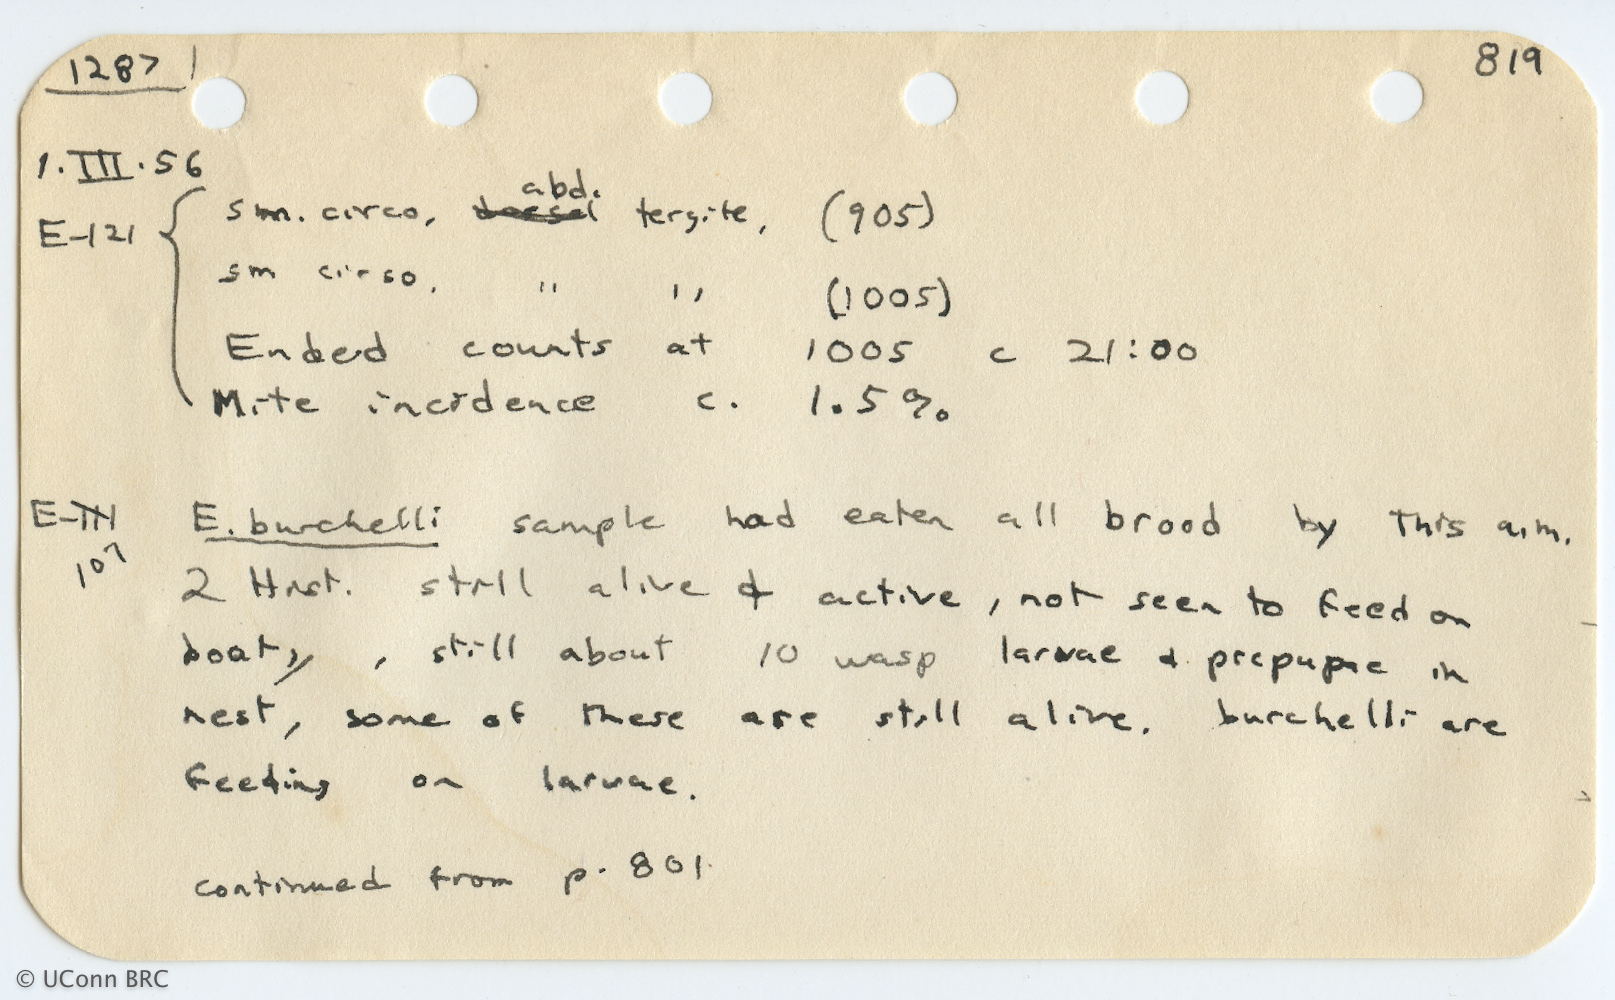 1287 819
1.III.56
abd.
E-121 sm. circo, dorsal tergite, (905)
sm circo, " " (1005)
Ended counts at 1005 c 21:00
Mite incidence c. 1.5%
E-111 E. burchelli sample had eaten all brood by this a.m.
107 2 Hist. still alive & active, not seen to feed on
booty, still about 10 wasp larvae & prepupae in
nest, some of these are still alive. burchelli are
feeding on larvae.
continued from p. 801.
© UConn BRC